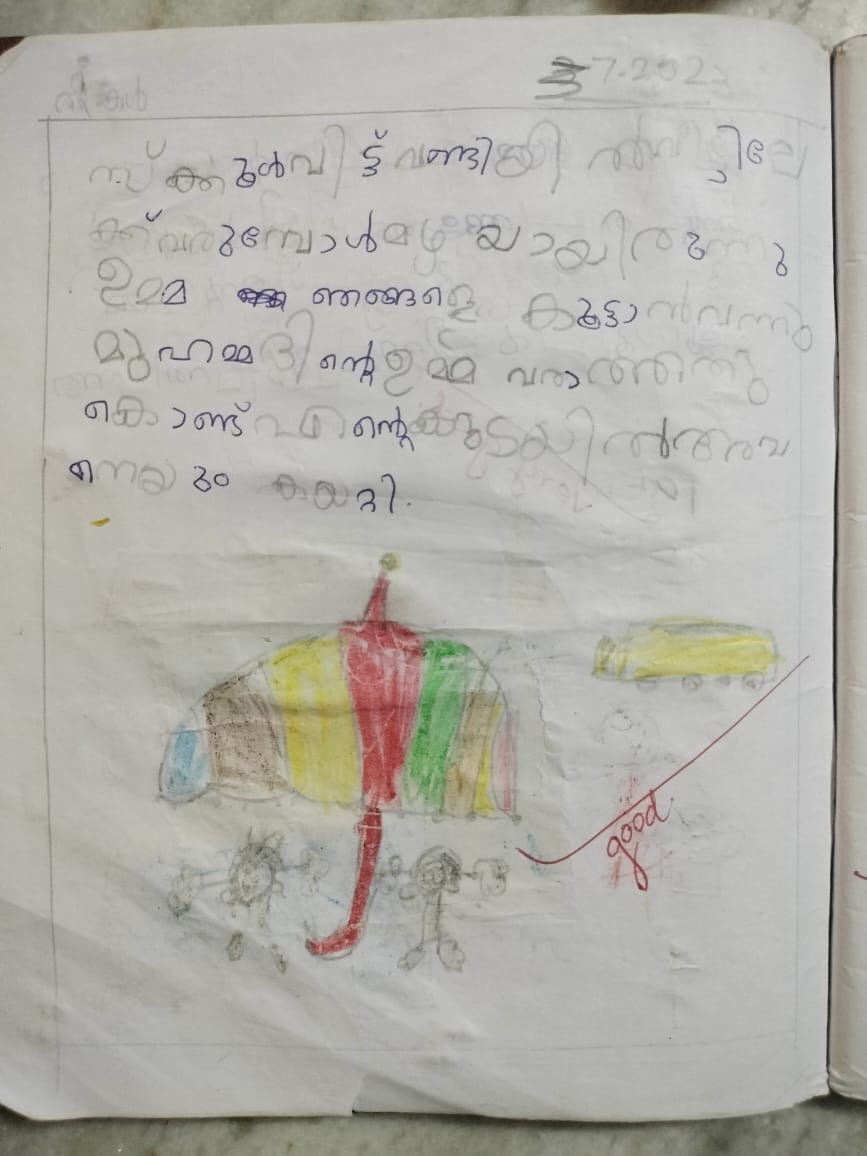 തിങ്കൾ 3.7.2023
സ്ക്കൂൾ വിട്ട് വണ്ടിയിൽ വീട്ടിലേ
ക്ക് വരുമ്പോൾ മഴ യായിരുന്നു
ഉമ്മ ഞങ്ങളെ കൂട്ടാൻ വന്നു
മുഹമ്മദിന്റെ ഉമ്മ വരാത്തതു
കൊണ്ട് എന്റെ കുടയിൽ അവ
നെയും കയറ്റി.
good